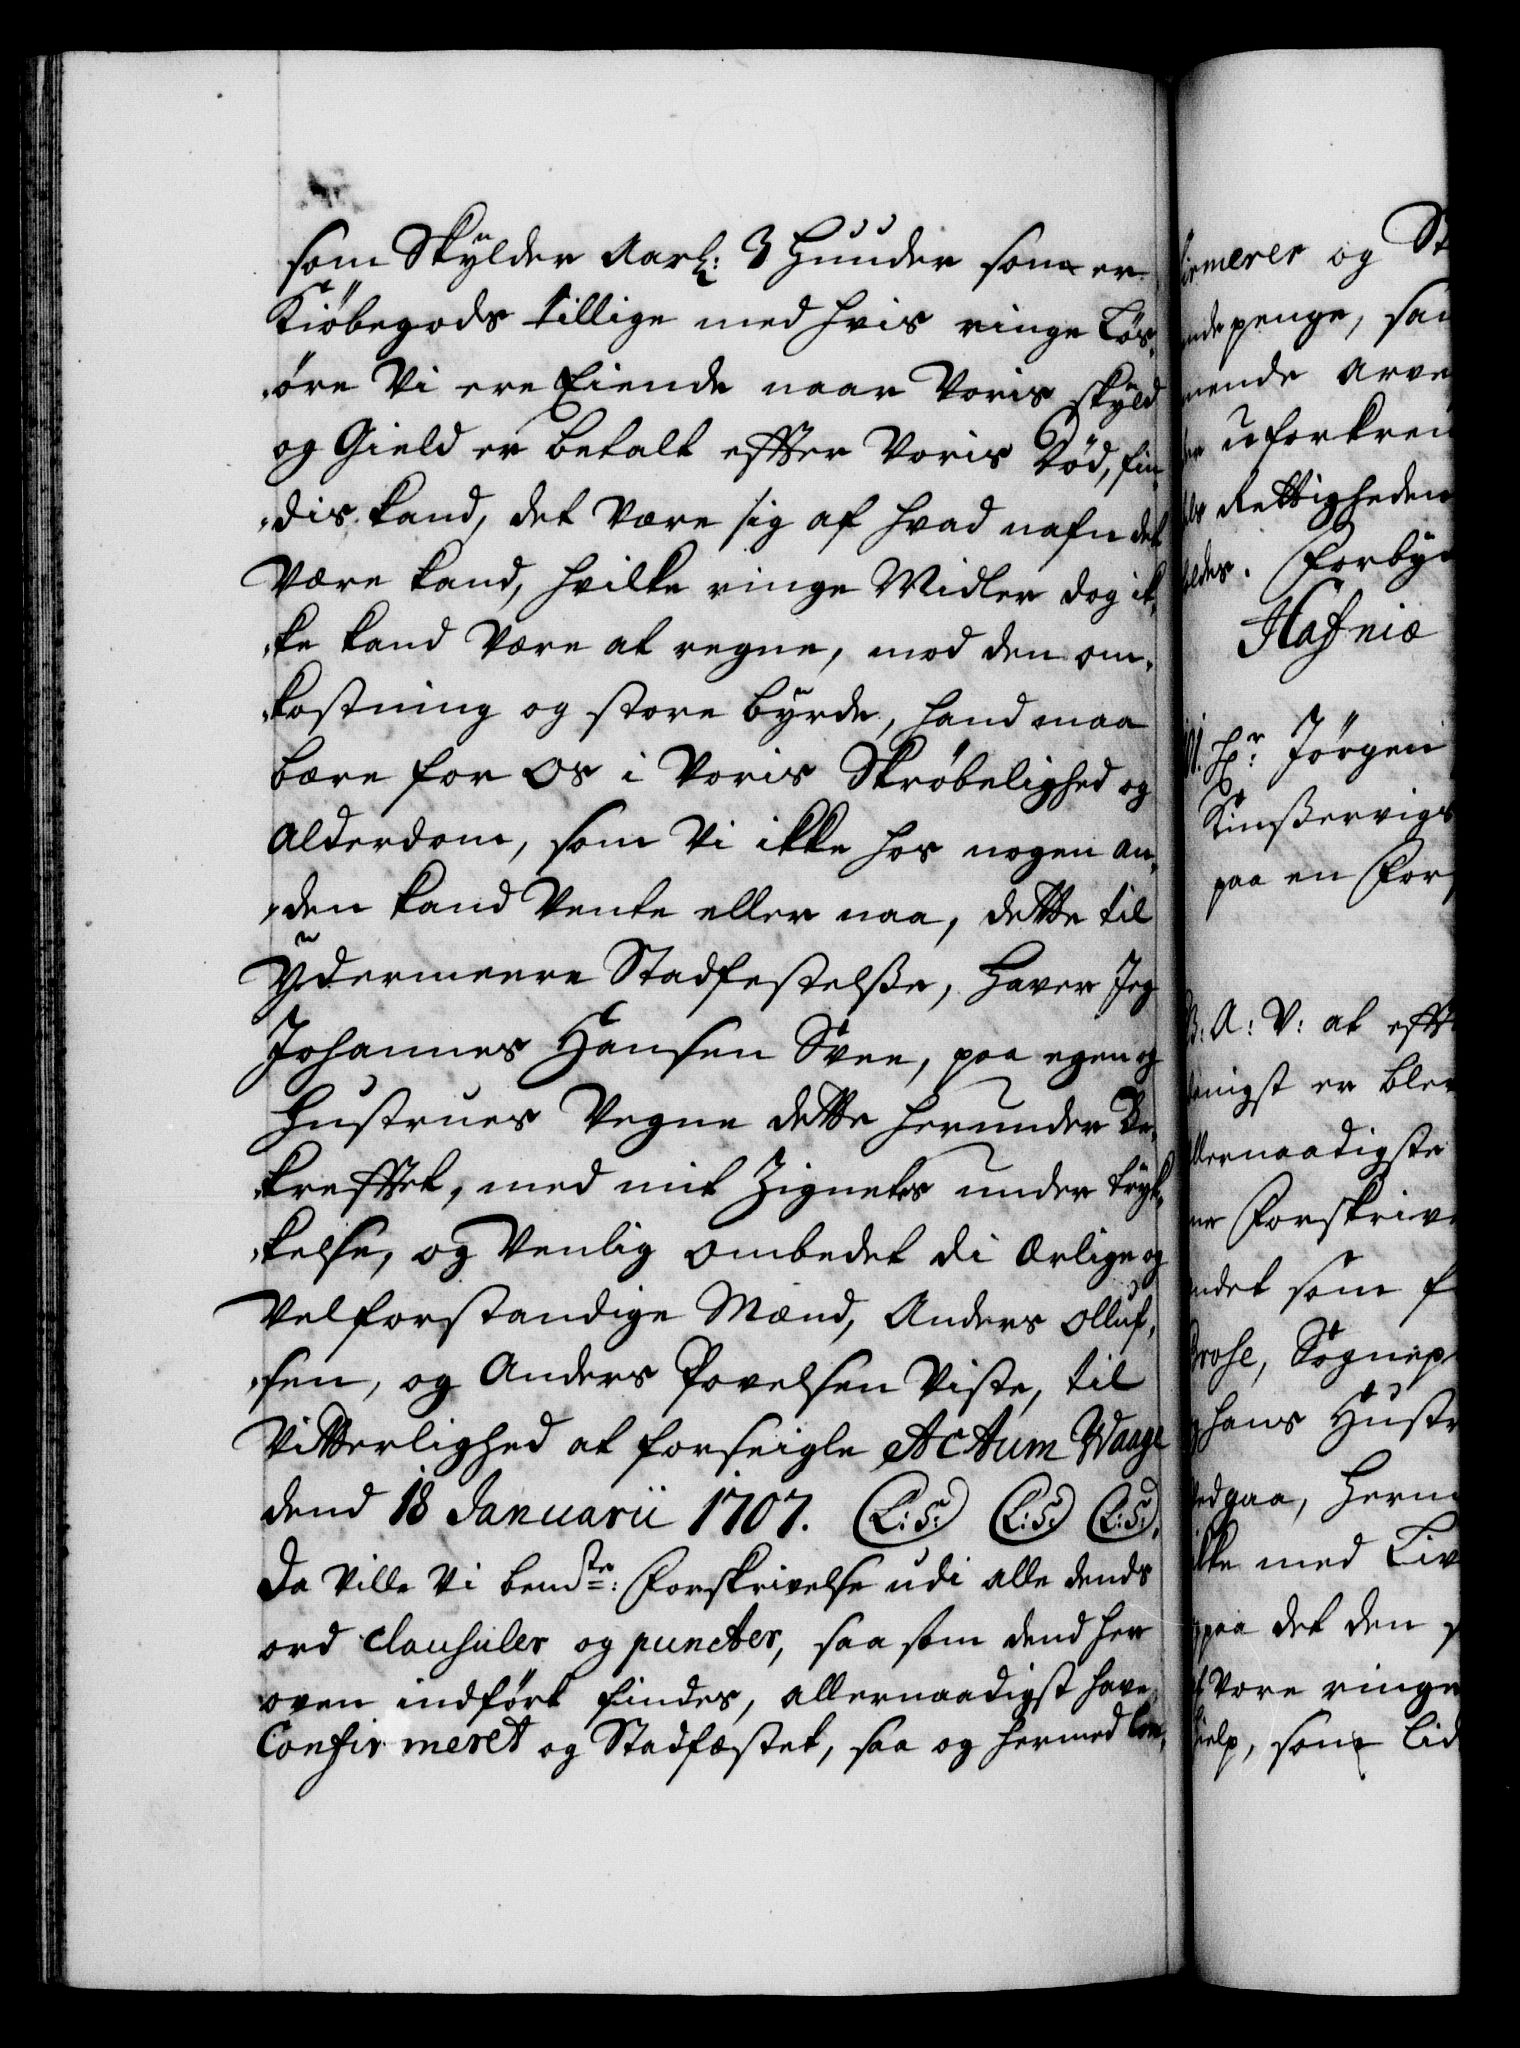 som Skylder Aarl: 3 Huuder som er
Kiøbegods tillige med hvis ringe Løs„
„øre Vi ere Eiende naar Voris skyld
og Gield er betalt effter Voris Død, fin„
„dis kand, det Være sig af hvad nafn det
Være kand, hvilke ringe Midler dog ik„
„ke kand Være at regne, mod den om„
„kostning og store byrde, hand maa
bære for Os i Voris Skrøbelighed og
Alderdom, som Vi ikke hos nogen an„
„den kand Vente eller naa, dette til
Ydermeere Stadfestelße, haver Jeg
Johannes Hansen Svee, paa egen og
Hustrues Vegne dette herunder Be„
„krefftet, med mit Zignetes under tryk„
„kelse, og Venlig ombedet di Ærlige og
Velforstandige Mænd, Anders Olluf„
„sen, og Anders Povelsen Viste, til
Vitterlighed at forseigle Actum Waage
dend 18 Januarii 1707. (L:S:) (L:S:) (L:S:).
Da Ville Vi bemte: Forskrivelse udi alle dends
ord clausuler og puncter, saa som dend her
oven indført findes, allernaadigst have
Confirmeret og Stadfæstet, saa og hermed Con„
firmerer og St
ende penge, saa
mende arve
uforkren
Rettigheden
holdes. Forby
Hafniæ
Hr: Jørgen
Kinßervigs
paa en For
G: A: V: at efft
danigst er blev
allernaadigste
Forskriv
andet som f
Brose, Sognep
hans Hustr
Vedgaa, herm
ikke med Liv
paa det den
Vore ringe
hielp, som Lid